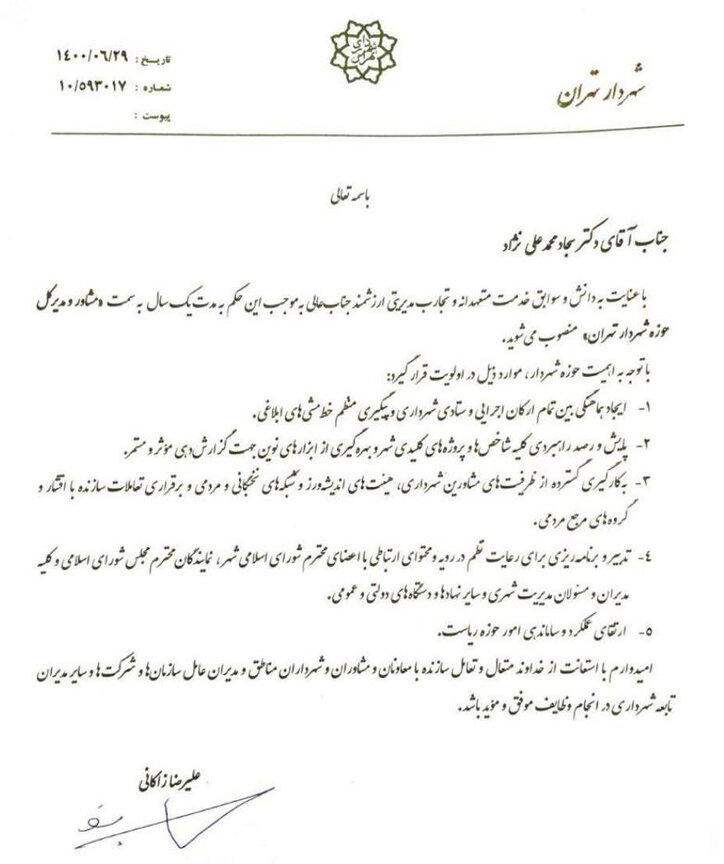 شهردار تهران
تاریخ: ۱۴۰۰/۰۶/۲۹
شماره: ۱۰/۵۹۳۰۱۷
پیوست:
باسمه تعالی
جناب آقای دکتر سجاد محمدعلی نژاد
با عنایت به دانش و سوابق خدمت متعهدانه و تجارب مدیریتی ارزشمند جنابعالی به موجب این حکم به مدت یک سال به سمت «مشاور و مدیرکل
حوزه شهردار تهران» منصوب می‌شوید.
با توجه به اهمیت حوزه شهردار، موارد ذیل در اولویت قرار گیرد:
۱- ایجاد هماهنگی بین تمام ارکان اجرایی و ستادی شهرداری و پیگیری منظم خط‌مشی‌های ابلاغی.
۲- پایش و رصد راهبردی کلیه شاخص‌ها و پروژه‌های کلیدی شهر و بهره‌گیری از ابزارهای نوین جهت گزارش‌دهی مؤثر و مستمر.
۳- به‌کارگیری گسترده از ظرفیت‌های مشاورین شهرداری، هیئت‌های اندیشه‌ورز و شبکه‌های نخبگانی و مردمی و برقراری تعاملات سازنده با اقشار و
گروه‌های مرجع مردمی.
۴- تدبیر و برنامه‌ریزی برای رعایت نظم در رویه و محتوای ارتباطی با اعضای محترم شورای اسلامی شهر، نمایندگان محترم مجلس شورای اسلامی و کلیه
مدیران و مسئولان مدیریت شهری و سایر نهادها و دستگاه‌های دولتی و عمومی.
۵- ارتقای عملکرد و ساماندهی امور حوزه ریاست.
امیدوارم با استعانت از خداوند متعال و تعامل سازنده با معاونان و مشاوران و شهرداران مناطق و مدیران عامل سازمان‌ها و شرکت‌ها و سایر مدیران
تابعه شهرداری در انجام وظایف موفق و مؤید باشد.
علیرضا زاکانی